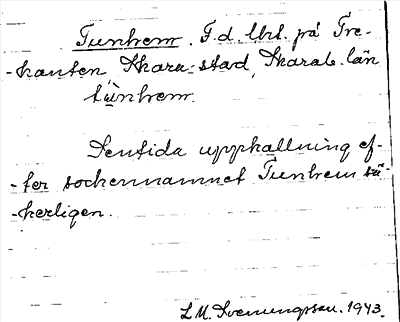 Tunhem. F.d. lht. på Tre-
-kanten, Skara stad, Skarab. län
tunhem.
Sentida uppkallning ef-
-ter sockennamnet Tunhem sä-
-kerligen.
L.M. Svenungsson. 1943.